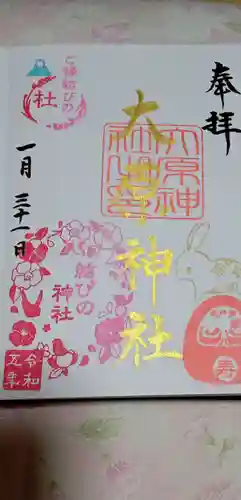 奉拝
寿
大 神社
ご縁結びの
社
結びの
神社
一月 三十一日
令和
五年